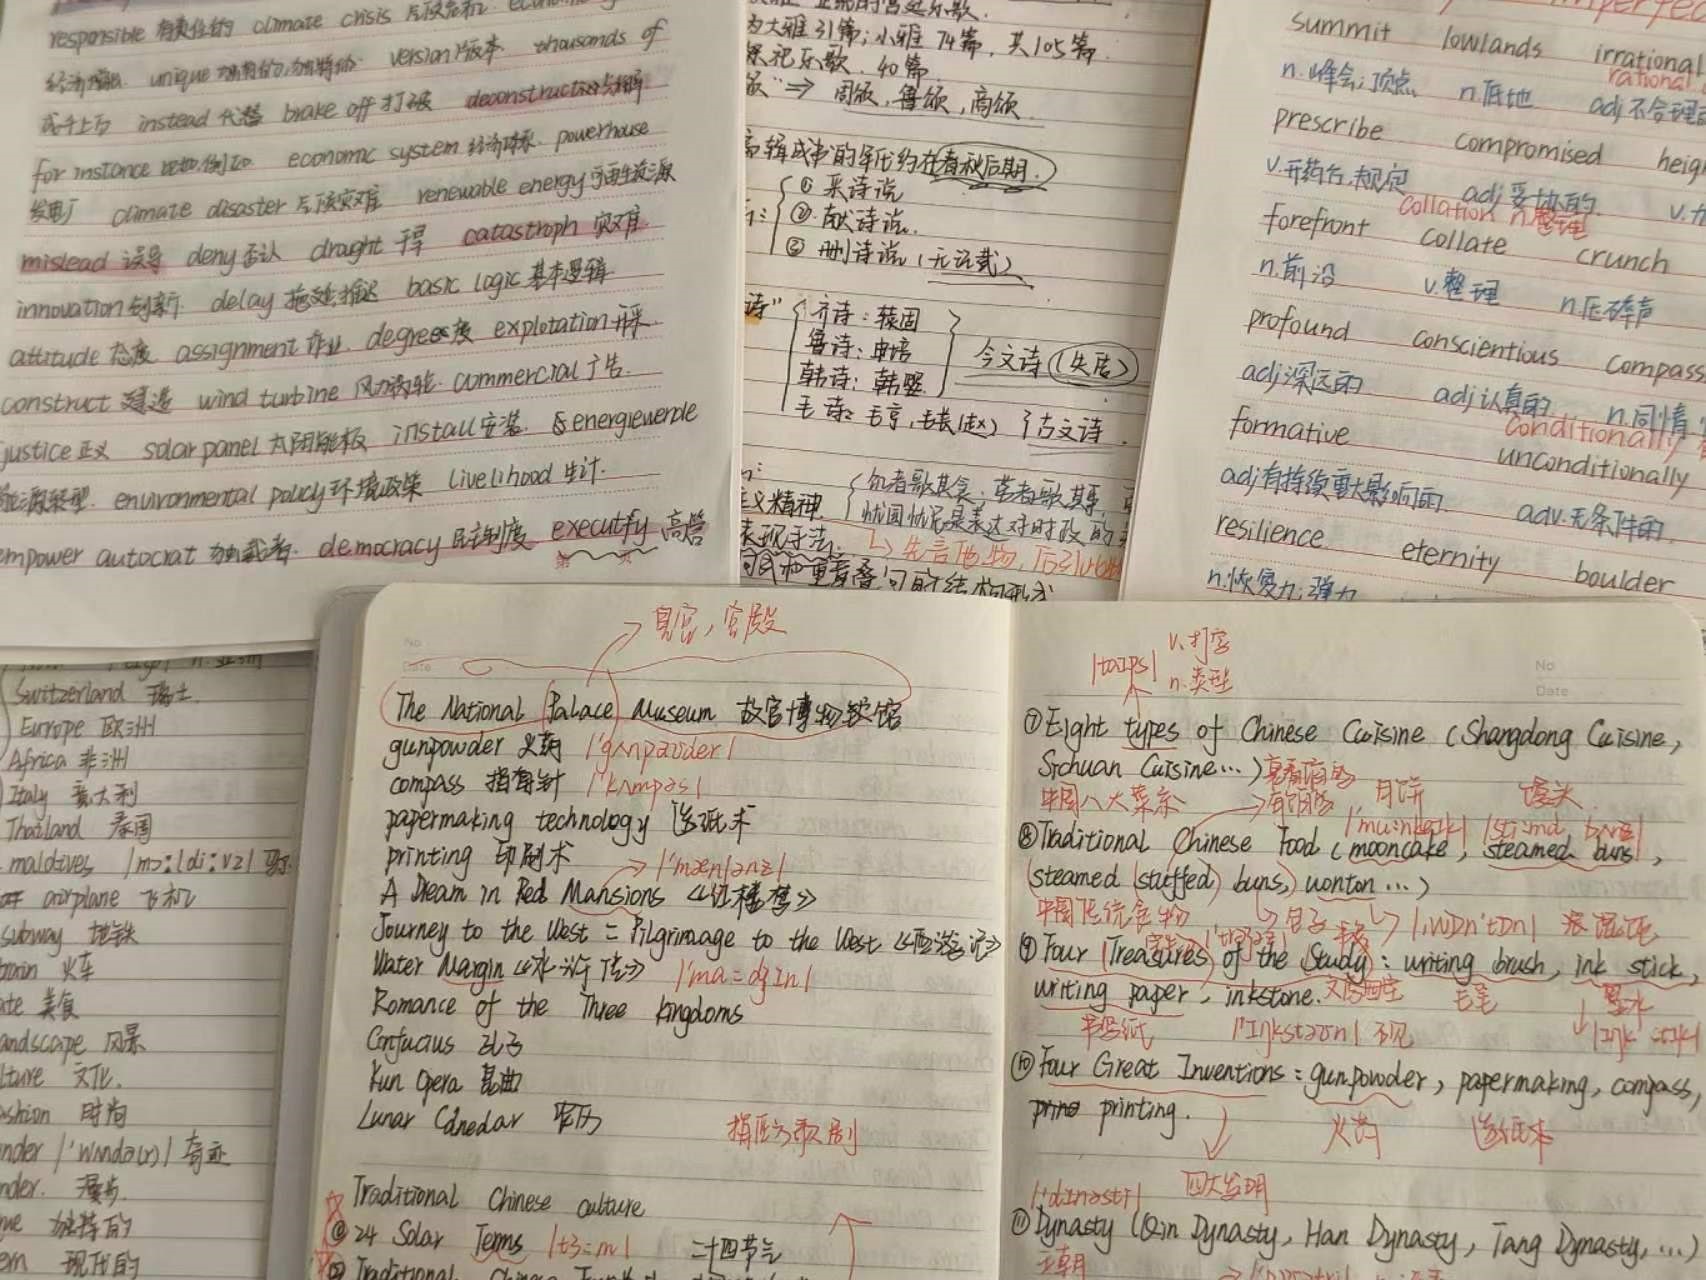 responsible 有责任的 climate crisis 气候危机
经济增长 unique 独有的,独特的 version 版本 thousands of
成千上万 instead 代替 brake off 打破 deconstruct 拆解
for instance 比如,例如 economic system 经济体系 powerhouse
发电厂 climate disaster 气候灾难 renewable energy 可再生资源
mislead 误导 deny 否认 draught 干旱 catastroph 灾难
innovation 创新 delay 拖延,推迟 basic logic 基本逻辑
attitude 态度 assignment 作业 degree 度 explotation 开采
construct 建造 wind turbine 风力涡轮 commercial 广告
justice 正义 solar panel 太阳能板 install 安装 energiewende
能源转型 environmental policy 环境政策 livelihood 生计
empower autocrat 独裁者 democracy 民主制度 executfy 高管
为大雅31篇;小雅74篇,共105篇
祭祀乐歌,40篇
⇒ 周颂,鲁颂,商颂
编辑成书的年代约在春秋后期.
① 采诗说
② 献诗说.
③ 删诗说(无记载)
诗"
齐诗:辕固
鲁诗:申培
韩诗:韩婴
今文诗(失传)
毛诗:毛亨,毛苌(赵) 古文诗
饥者歌其食,劳者歌其事,
义精神.
忧国忧民是表达对时政的
表现手法. 先言他物,后引
重章叠句的结构形式
summit lowlands irrational
rational
n.峰会;顶点 n.低地 adj不合理的
prescribe compromised heigh
v.开药方,规定 adj妥协的
collation n.整理
forefront collate crunch
n.前沿 v.整理 n.压碎声
profound conscientious compass
adj深远的 adj认真的 n.同情
conditionally
formative unconditionally
adj有持续重大影响的 adv.无条件的
resilience eternity boulder
n.恢复力;弹力
Switzerland 瑞士
Europe 欧洲
Africa 非洲
Italy 意大利
Thailand 泰国
maldives
airplane 飞机
subway 地铁
火车
美食
andscape 风景
lture 文化.
shion 时尚
nder |'wʌndə(r)| 奇迹
nder. 漫步.
独特的
现代的
No
Date
皇宫,宫殿
The National Palace Museum 故宫博物院馆
gunpowder 火药 |'gʌnpaʊdər|
compass 指南针 |'kʌmpəs|
papermaking technology 造纸术
printing 印刷术
|'mænʃənz|
A Dream in Red Mansions 《红楼梦》
Journey to the West = Pilgrimage to the West 《西游记》
Water Margin 《水浒传》 |'ma:dʒɪn|
Romance of the Three kingdoms
Confucius 孔子
Kun Opera 昆曲
Lunar Canedar 农历
指压为歌剧
Traditional Chinese culture
24 Solar Terms |tɜ:m| 二十四节气
No
Date
|taɪps| v.打字
n.类型
⑦Eight types of Chinese Cuisine (Shangdong Cuisine,
Sichuan Cuisine...)
中国八大菜系 有馅的 月饼 馒头
⑧Traditional Chinese Food (mooncake, steamed buns,
(steamed (stuffed) buns,) wonton...)
中国传统食物 包子 |,wɒn'tɒn|
⑨Four Treasures of the Study: writing brush, ink stick,
writing paper, inkstone. 文房四宝 毛笔 墨水
|'ɪŋkstəʊn| 砚
⑩Four Great Inventions: gunpowder, papermaking, compass,
printing. 火药 造纸术
四大发明
|'dɪnəsti|
⑪Dynasty (Qin Dynasty, Han Dynasty, Tang Dynasty,...)
王朝